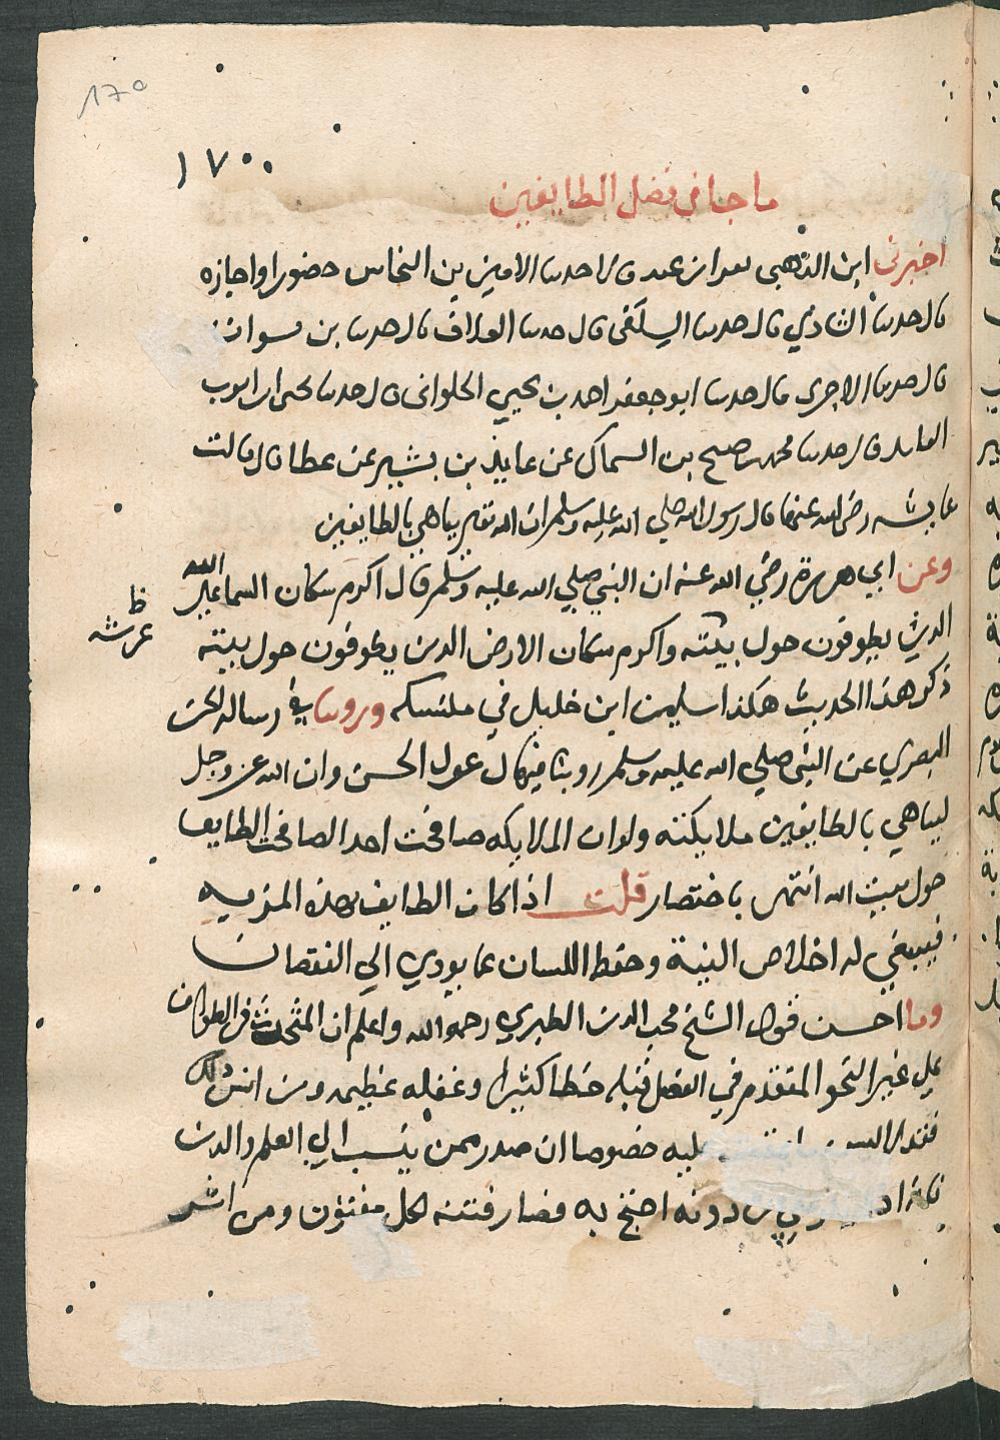 ١٧٥
١٧٠٠
ما جا في فضل الطايفين
اخبرني ابن الذهبي بقراءتي عليه قال احدسا الامين بن النحاس حضورا واجازه
قال حدسا الشاذي قال حدسا السلفي قال حدسا العلاف قال حدسا بن بشران
قال حدسا الاجري قال حدسا ابو جعفر احمد بن يحيي الحلواني قال حدسا يحيى بن ايوب
العابد قال حدسا محمد بن صبيح بن السماك عن عايذ بن بشير عن عطا قال قالت
عايشه رضي الله عنها قال رسول الله صلي الله عليه وسلم ان الله تعالى يباهي بالطايفين
وعن ابي هريرة رضي الله عنه ان النبي صلي الله عليه وسلم قال اكرم سكان السما علي الله
الذين يطوفون حول بيته واكرم سكان الارض الدين يطوفون حول بيته
ظ
عرشه
ذكر هذا الحديث هكذا سليمن ابن خليل في منسكه وروينا في رساله الحسن
البصري عن النبي صلي الله عليه وسلم روينا فيها من قول الحسن وان الله عز وجل
ليباهي بالطايفين ملايكته ولو ان الملايكه صافحت احدا لصافحت الطايف
حول بيت الله انتهى باختصار قلت اذا كان الطايف بهذه المزيه
فينبغي له اخلاص النية وحفظ اللسان عما يودي الي النقصان
وما احسن قول الشيخ محب الدين الطبري رحمه الله واعلم ان المتحدث في الطواف
علي غير النحو المتقدم في الفصل قبله خطا كثيرا وغفله عظيمه ومن ذلك
فقد لابس عليه خصوصا ان صدر ممن ينسب الي العلم والدين
فانه اذا من دونه احتج به فصار فتنه لكل مفتون ومن اثر